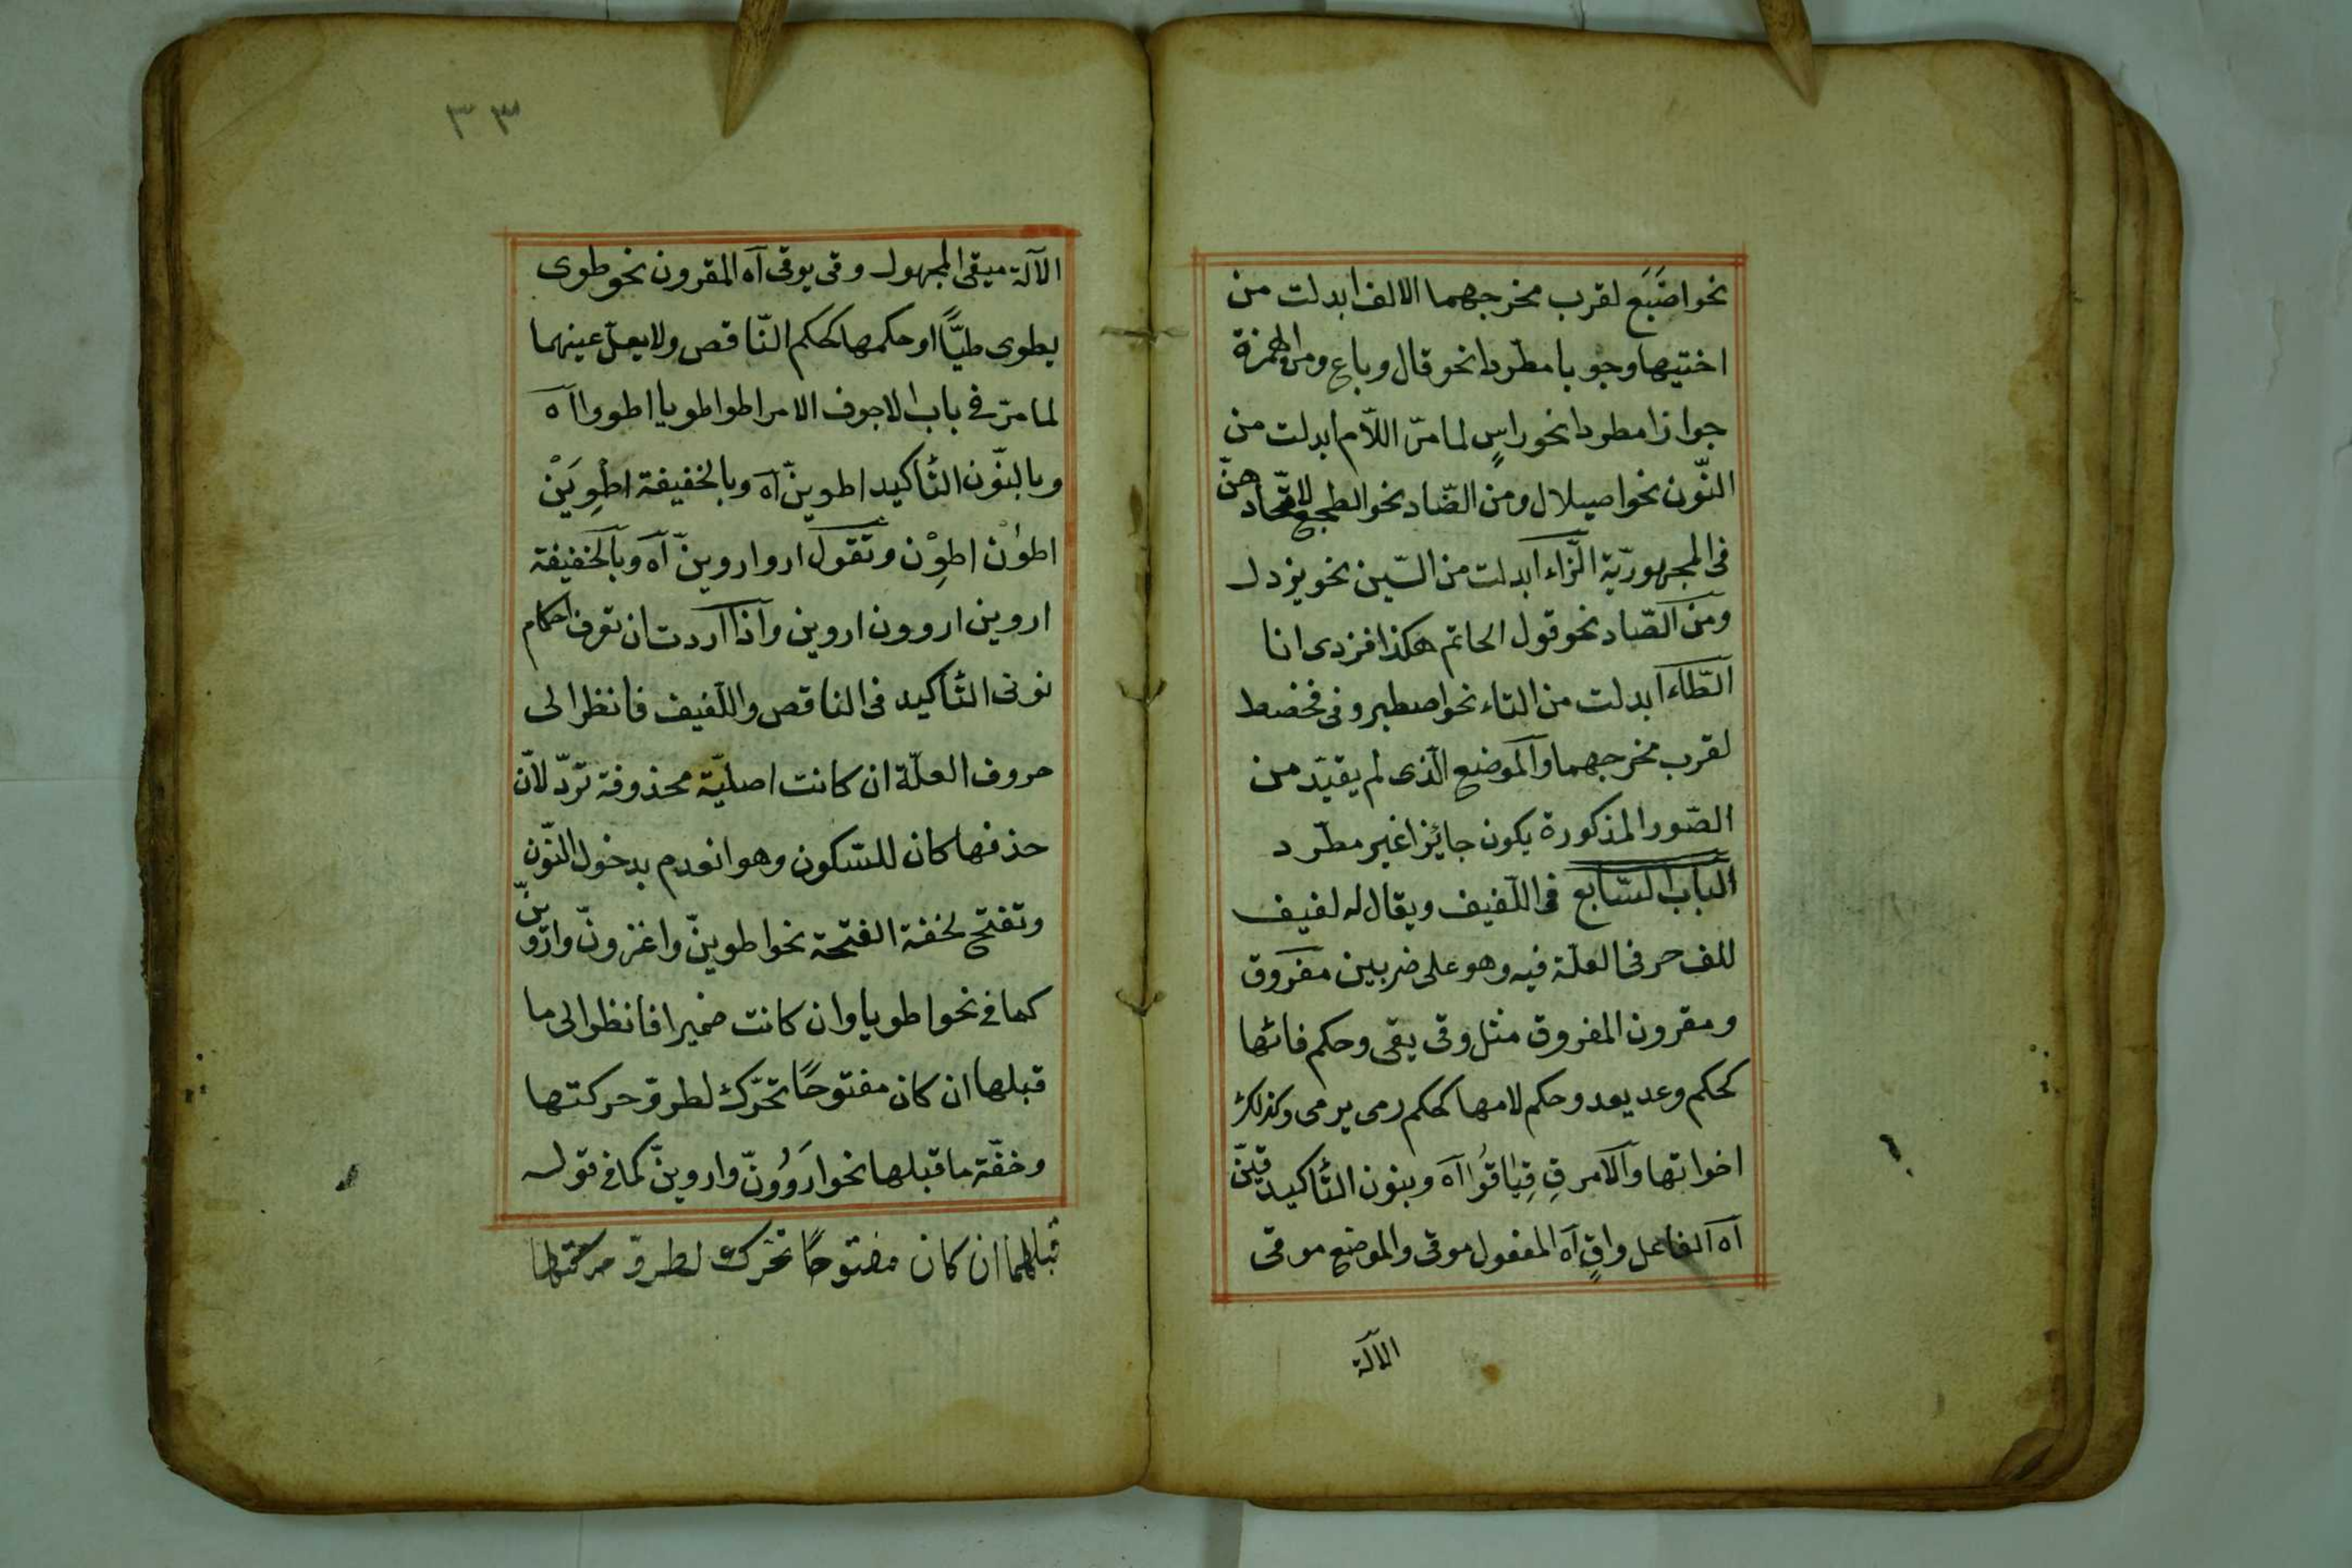 نحو اضَبَع لقرب مخرجهما الالف ابدلت من
اختيها وجوبا مطّردا نحو قال وباع ومن الهمزة
جوازا مطردا نحو راسٍ لما مرّ اللاّم ابدلت من
النّون نحو اصيلال ومن الضّاد نحو الطجع لاتّحادهنّ
فى المجهوريّة الزّاء ابدلت من السّين نحو يزدل
ومن الصّاد نحو قول الحاتم هكذا فزدى انا
الطّاء ابدلت من التاء نحو اصطبر وفى فحصط
لقرب مخرجهما والموضع الّذى لم يقيّد من
الصّور المذكورة يكون جائزا غير مطّرد
الباب السّابع فى اللّفيف ويقال له لفيف
للف حرفى العلّة فيه وهو على ضربين مفروق
ومقرون المفروق مثل وقى يقى وحكم فائها
كحكم وعد يعد وحكم لامها كحكم رمى يرمى وكذلك
اخواتها والامر قِ قِيَا قُوا آه وبنون التّأكيد قِيَنّ
آه الفاعل واقٍ آه المفعول موقى والموضع موقى
الآلة
٣٣
الآلة ميقى المجهول وقى يوقى آه المقرون نحو طوى
يطوى طيًّا او حكمها كحكم النّاقص ولا يعلّ عينهما
لما مرّ فى باب الاجوف الامر اطو اطويا اطووا آه
وبالنّون التّأكيد اطوينّ آه وبالخفيفة اطْوِيَنْ
اطوُن اطوِن وتقول ارو اروينّ آه وبالخفيفة
اروين اروون اروين واذا اردت ان تعرف احكام
نونى التّأكيد فى الناقص واللّفيف فانظر الى
حروف العلّة ان كانت اصليّة محذوفة تردّ لانّ
حذفها كان للسّكون وهو انعدم بدخول النّون
وتفتح لخفة الفتحة نحو اطوينّ واغزونّ واروينّ
كما فى نحو اطويا وان كانت ضميرا فانظر الى ما
قبلها ان كان مفتوحًا تحرّك لطرو حركتها
وخفّة ما قبلها نحو اروَوُنّ واروينّ كما فى قوله
قبلهما ان كان مفتوحًا تحرك لطرو حركتها